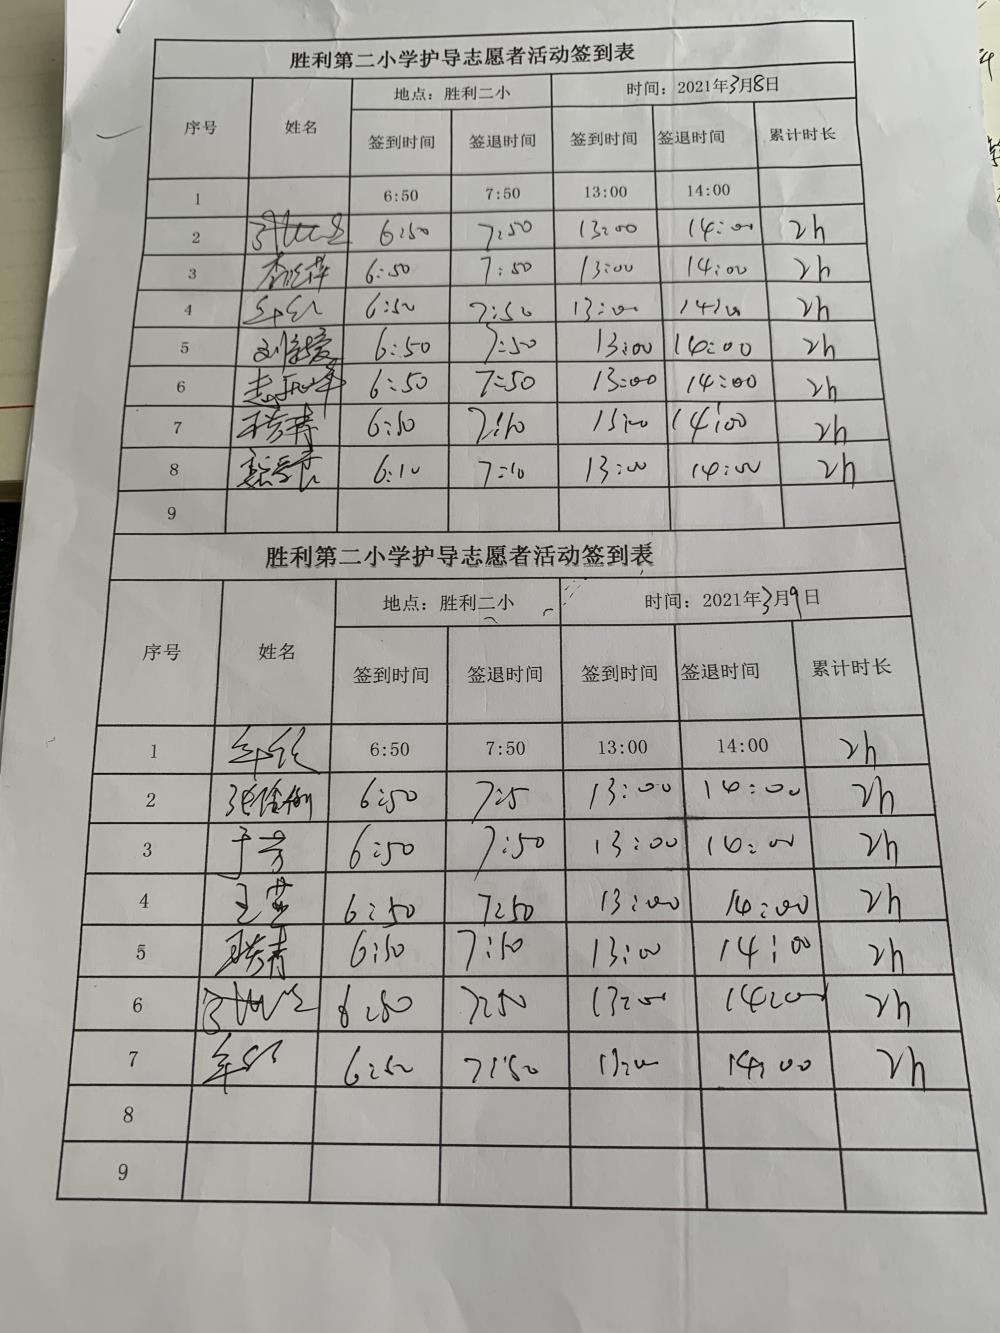 胜利第二小学护导志愿者活动签到表
序号 姓名 地点：胜利二小 时间：2021年3月8日
签到时间 签退时间 签到时间 签退时间 累计时长
1 6:50 7:50 13:00 14:00
2 6:50 7:50 13:00 14:00 2h
3 6:50 7:50 13:00 14:00 2h
4 6:50 7:50 13:00 14:00 2h
5 6:50 7:50 13:00 14:00 2h
6 6:50 7:50 13:00 14:00 2h
7 6:50 7:50 13:00 14:00 2h
8 6:10 7:10 13:00 14:00 2h
9
胜利第二小学护导志愿者活动签到表
序号 姓名 地点：胜利二小 时间：2021年3月9日
签到时间 签退时间 签到时间 签退时间 累计时长
1 6:50 7:50 13:00 14:00 2h
2 6:50 7:5 13:00 14:00 2h
3 于芳 6:50 7:50 13:00 14:00 2h
4 6:50 7:50 13:00 14:00 2h
5 6:50 7:50 13:00 14:00 2h
6 6:50 7:50 13:00 14:00 2h
7 6:50 7:50 13:00 14:00 2h
8
9